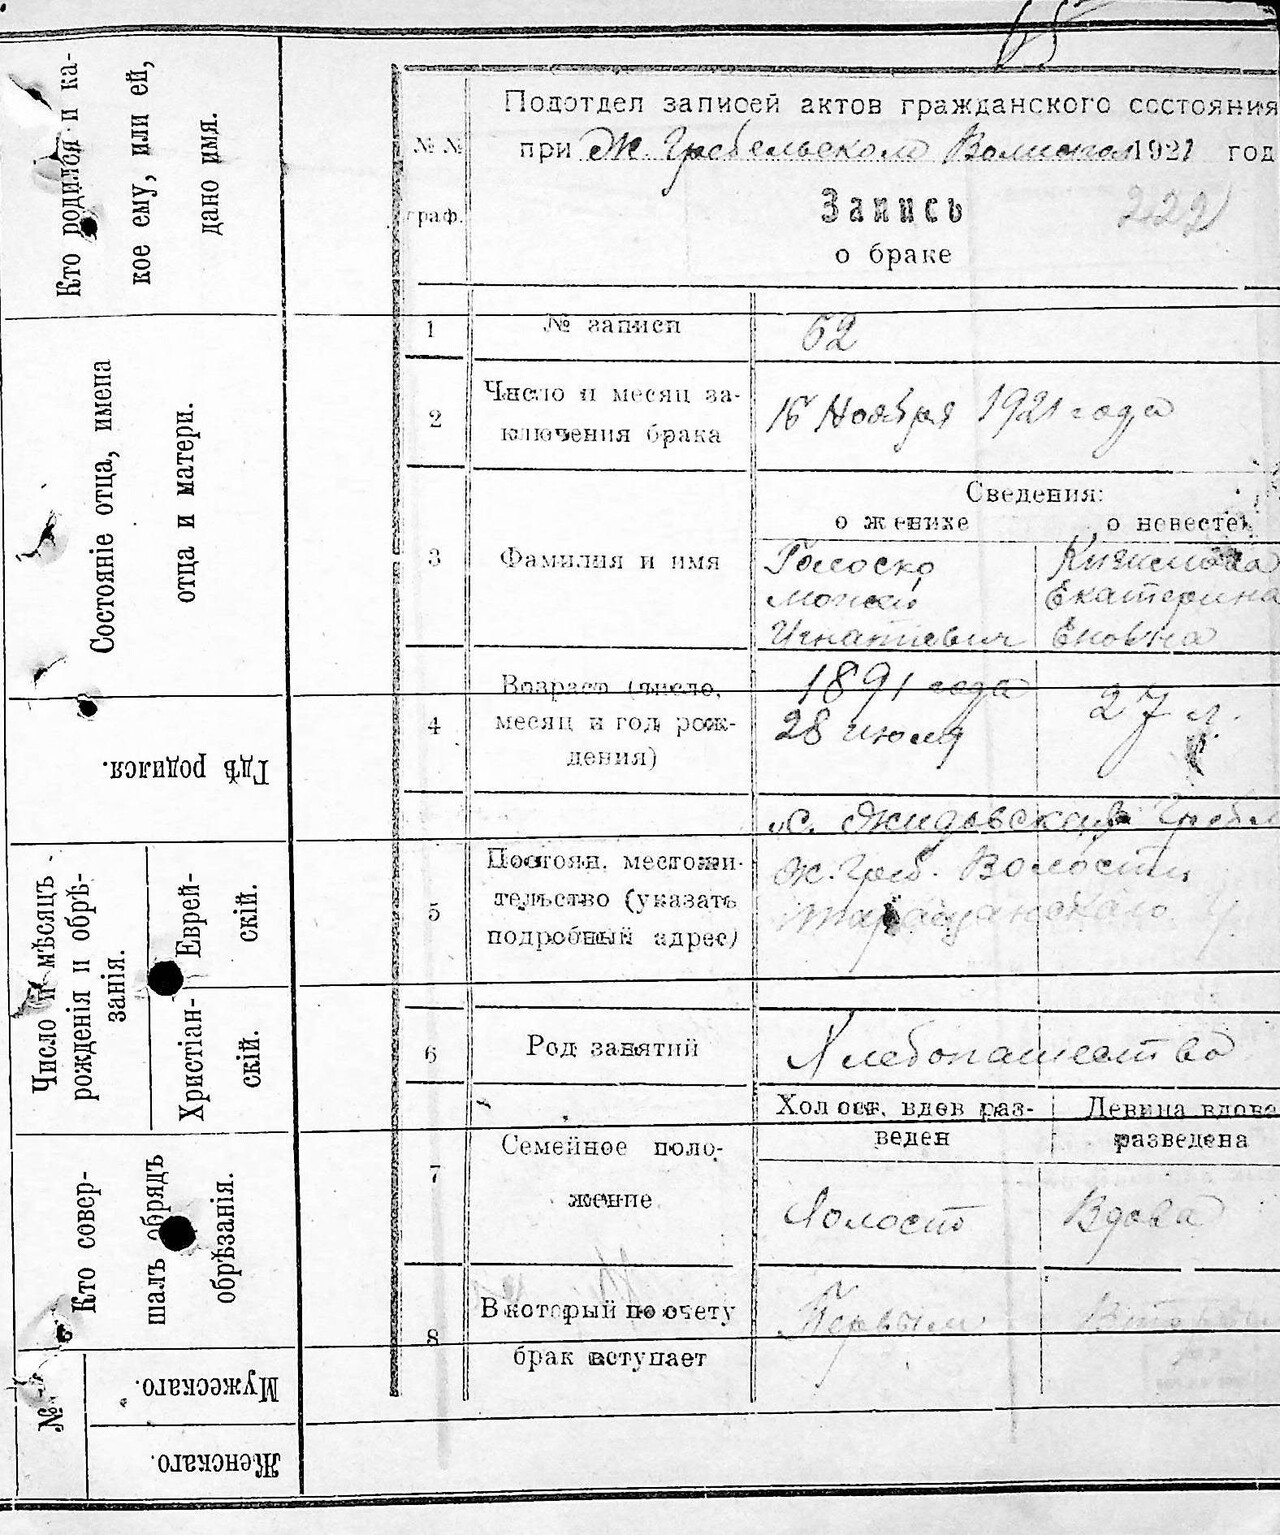 Кто родился и ка-
кое ему, или ей,
дано имя.
Состояніе отца, имена
отца и матери.
Гдѣ родился.
Число и мѣсяцъ
рожденія и обрѣ-
занія.
Еврей-
скій.
Христіан-
скій.
Кто совер-
шалъ обрядъ
обрѣзанія.
№
Мужескаго.
Женскаго.
65
№№
граф.
Подотдел записей актов гражданского состояния
при Ж. Гребельском 1921 год
Запись
222
о браке
1
№ записи
62
2
Число и месяц за-
ключения брака
16 Ноября 1921 года
3
Фамилия и имя
Сведения:
о женихе
о невесте
Голоско
Мойсей
Игнатиевич
Екатерина
4
Возраст (число,
месяц и год рож-
дения)
1891 года
28 июля
27 л.
5
Постоян. местожи-
тельство (указать
подробный адрес)
с. Жидовская Гребля
Ж. Греб. Волости
Таращанского У.
6
Род занятий
Хлебопашество
7
Семейное поло-
жение
Холост, вдов раз-
веден
Девица вдова
разведена
Холост
Вдова
8
В который по счету
брак вступает
Первым
Вторым